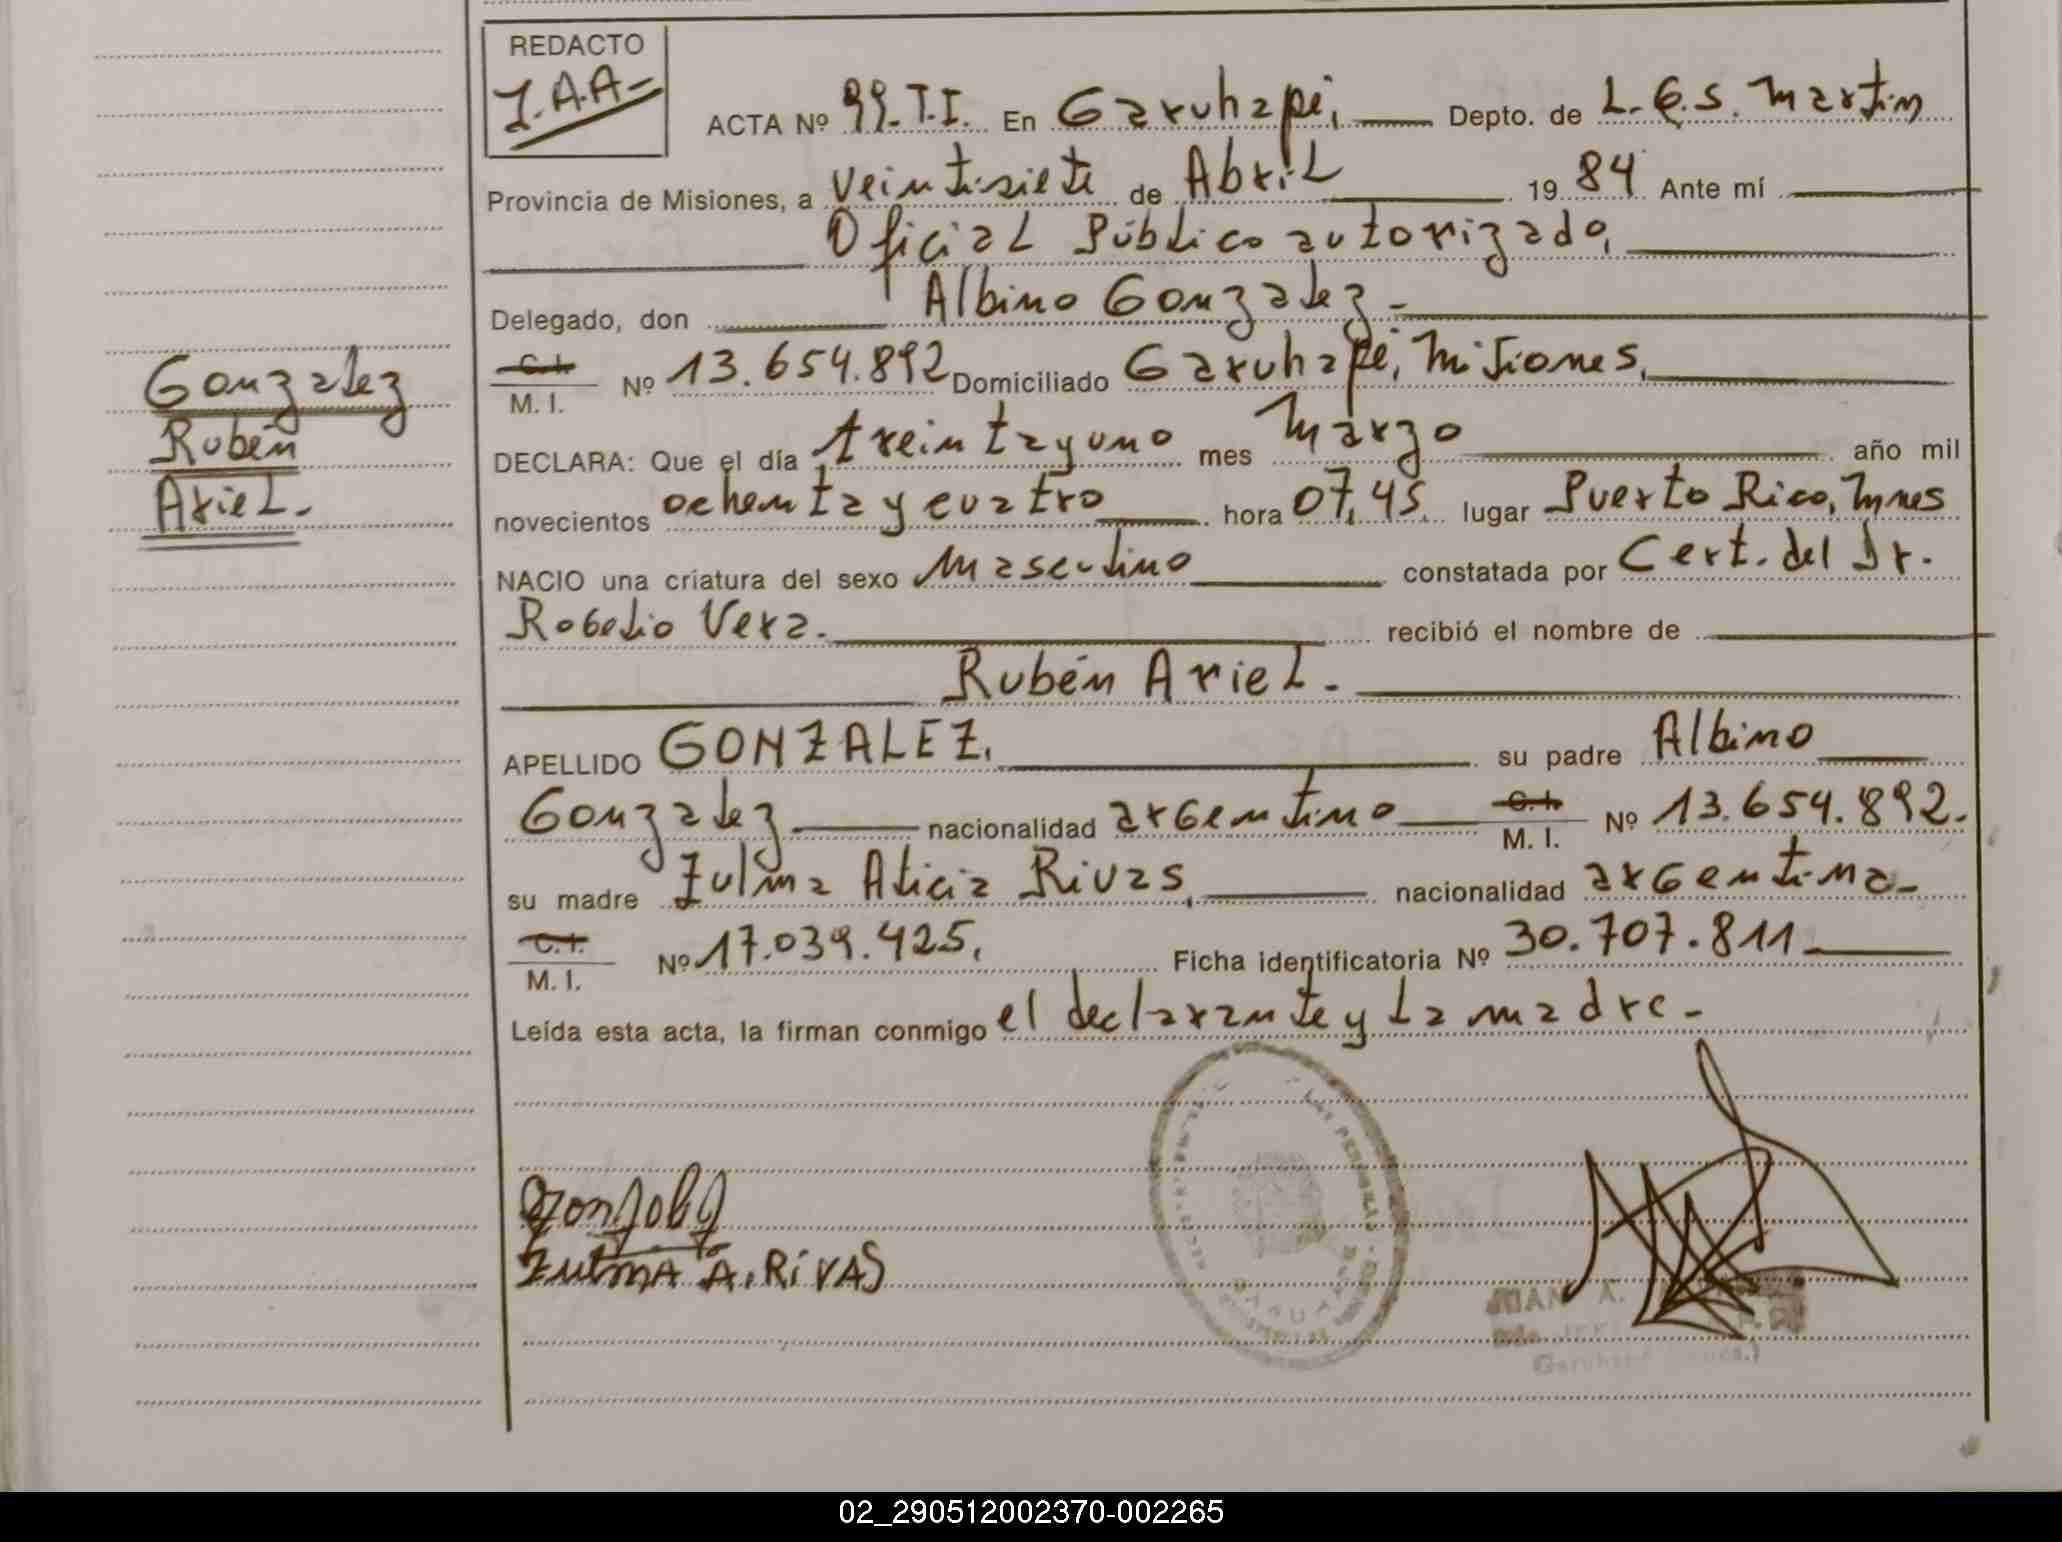 REDACTO
J.A.A.
ACTA Nº 99-T.I. En Garuhapé, Depto. de L.G.S. Martín
Provincia de Misiones, a Veintisiete de Abril 1984 Ante mí
Oficial Público autorizado,
Delegado, don Albino Gonzalez.-
C.I.
M.I. Nº 13.654.892 Domiciliado Garuhapé, Misiones,
DECLARA: Que el día treinta y uno mes Marzo año mil
novecientos ochenta y cuatro hora 07,45 lugar Puerto Rico, Mnes
NACIO una criatura del sexo Masculino constatada por Cert. del Dr.
Rogelio Vera. recibió el nombre de
Rubén Ariel.-
APELLIDO GONZALEZ, su padre Albino
Gonzalez nacionalidad argentino C.I.
M.I. Nº 13.654.892.
su madre Zulma Alicia Rivas, nacionalidad argentina-
C.I.
M.I. Nº 17.039.425, Ficha identificatoria Nº 30.707.811
Leída esta acta, la firman conmigo el declarante y la madre-
Gonzalez
Rubén
Ariel.-
ZulmA A. RiVAS
JUAN A.
02_290512002370-002265